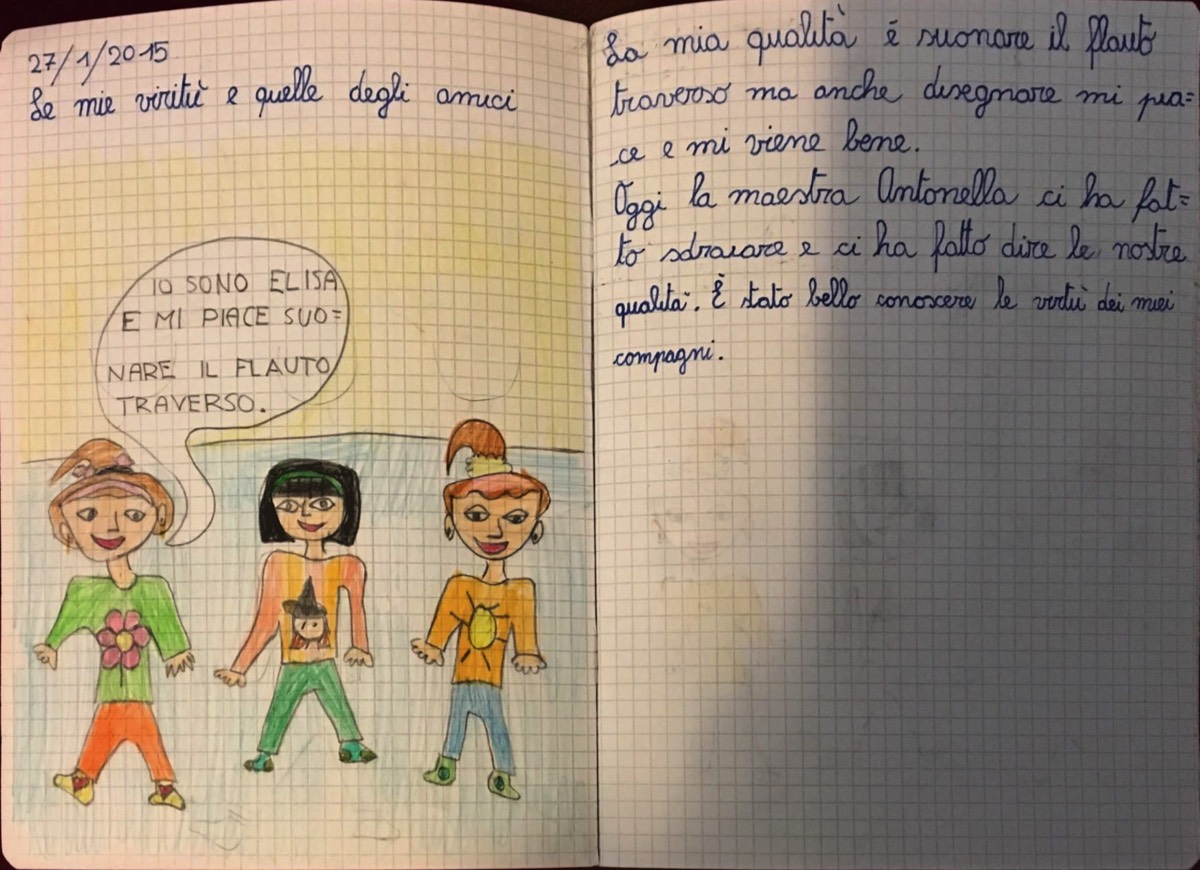 27/1/2015
Le mie viritù e quelle degli amici
IO SONO ELISA
E MI PIACE SUO=
NARE IL FLAUTO
TRAVERSO.
La mia qualità è suonare il flauto
traverso ma anche disegnare mi pia=
ce e mi viene bene.
Oggi la maestra Antonella ci ha fat=
to sdraiare e ci ha fatto dire le nostre
qualità. È stato bello conoscere le virtù dei miei
compagni.